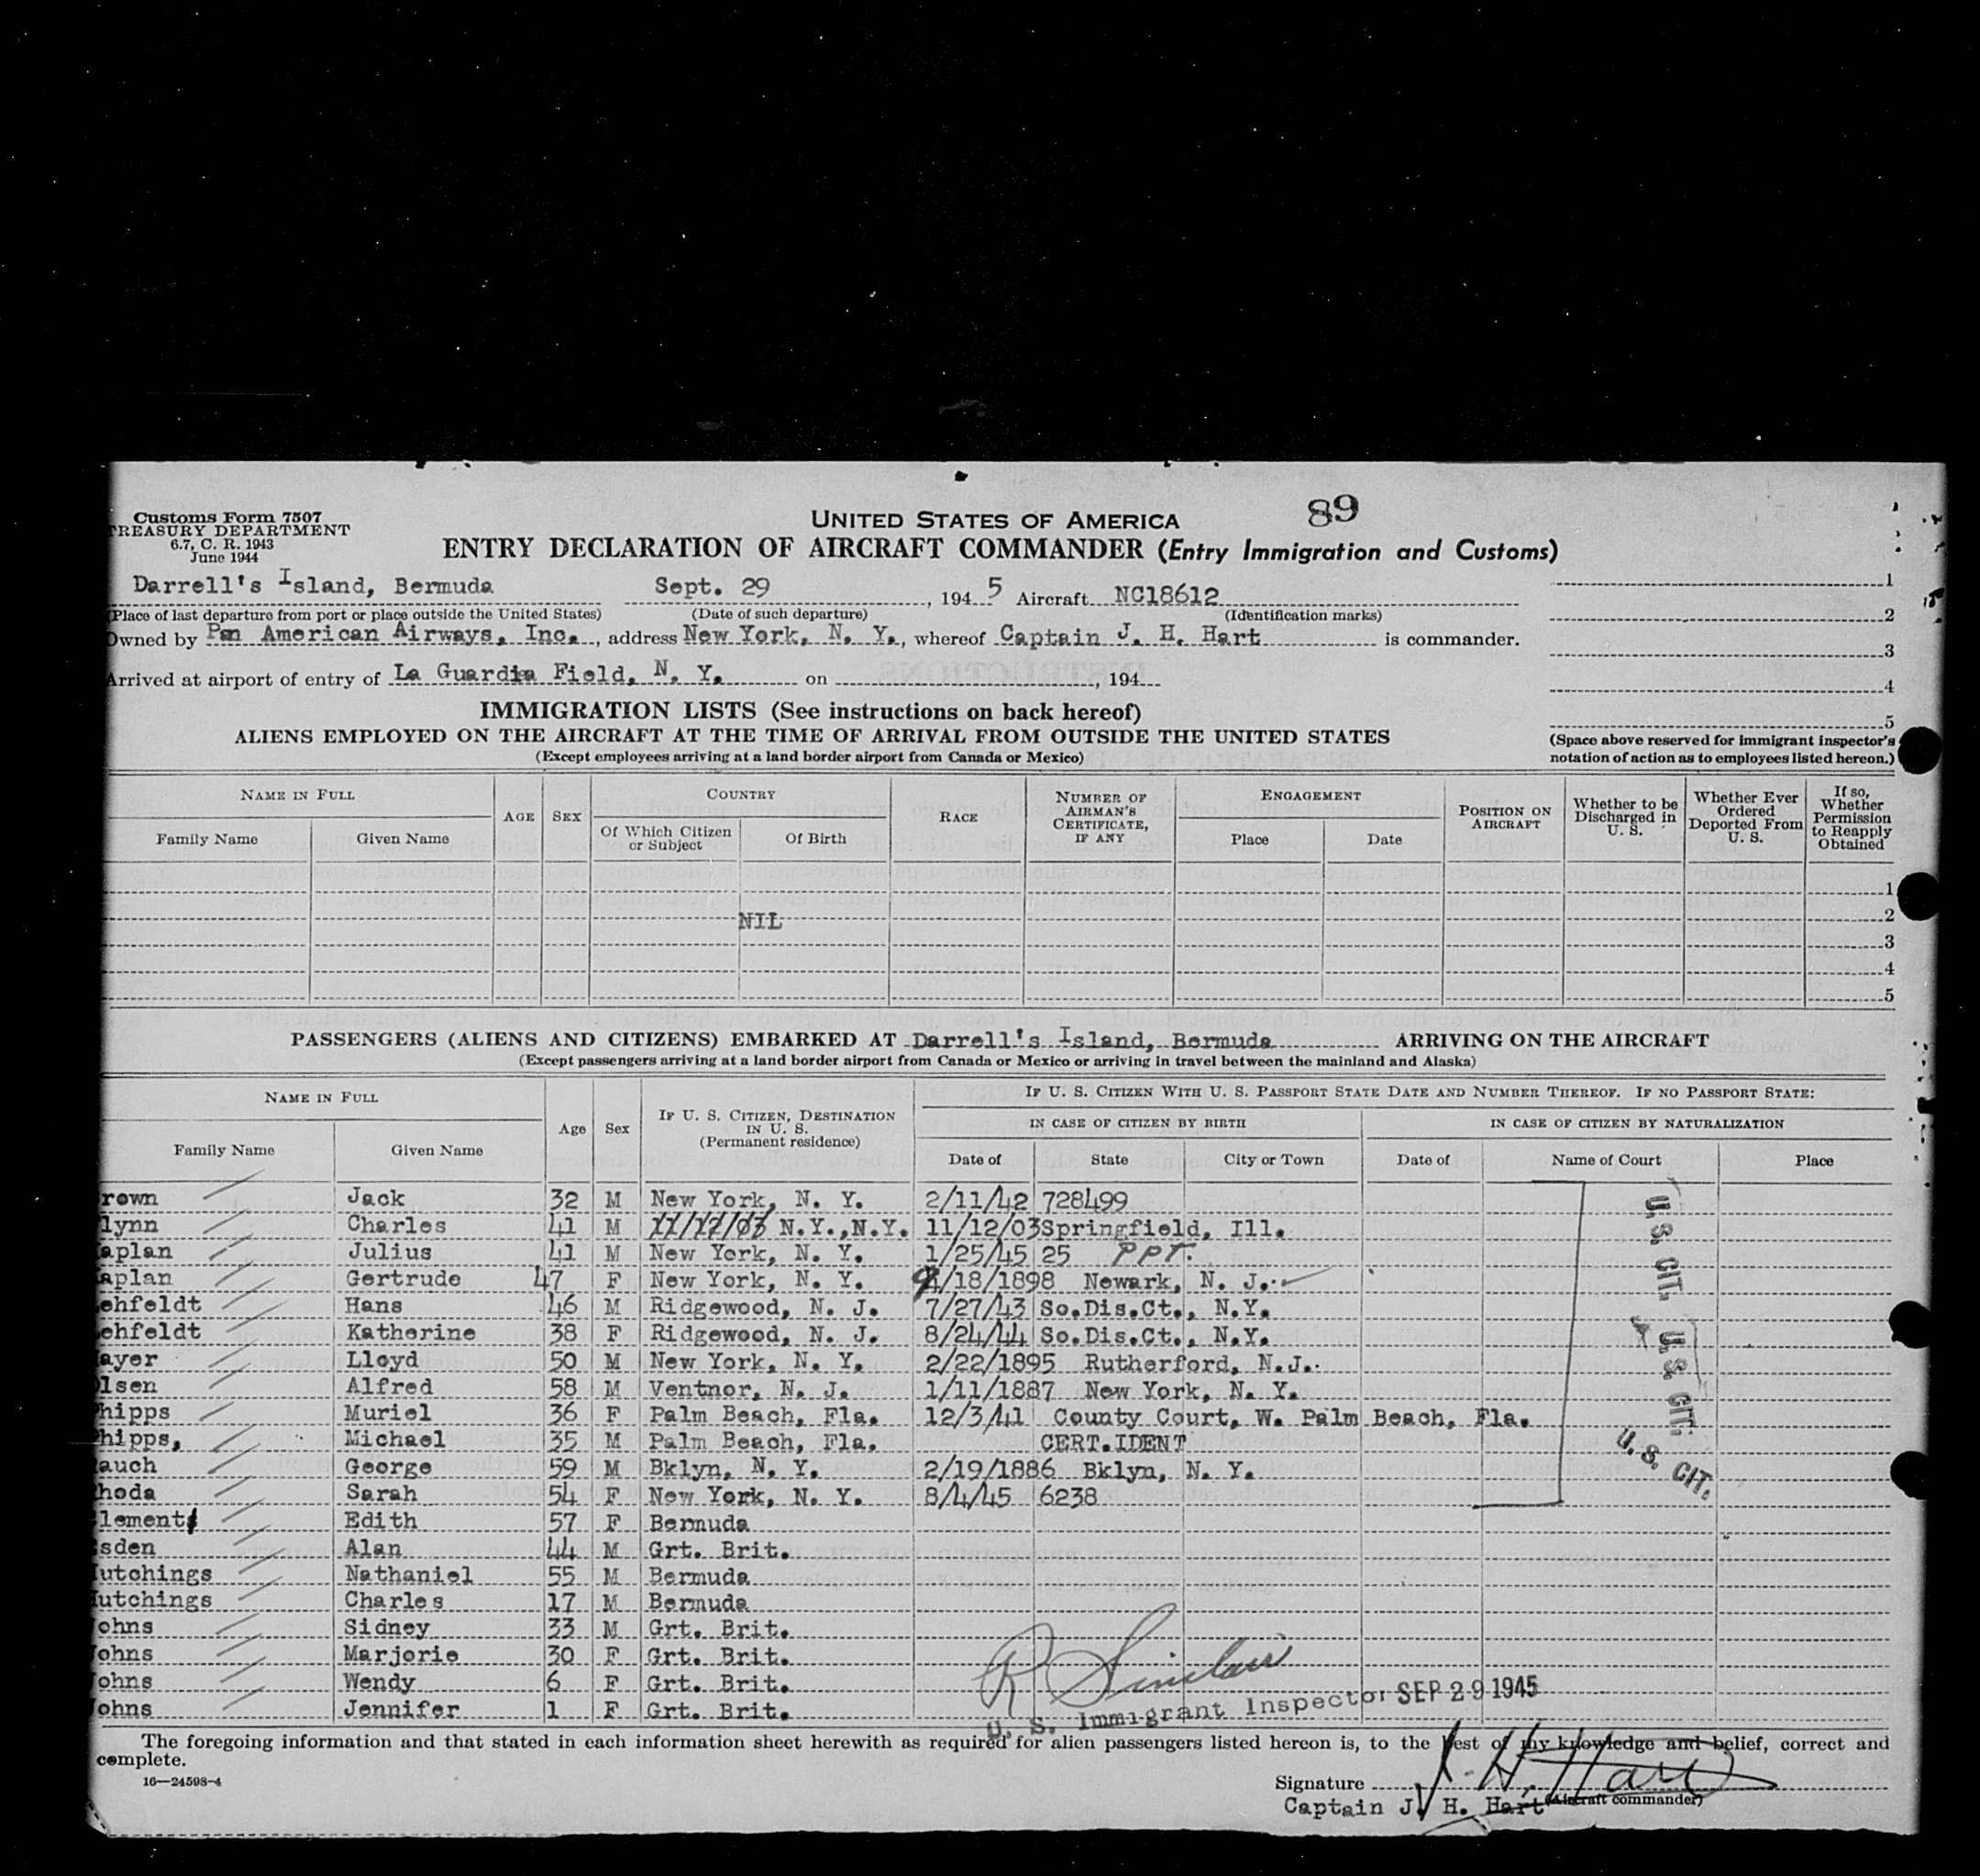 89
Customs Form 7507
TREASURY DEPARTMENT
6.7, C. R. 1943
June 1944
UNITED STATES OF AMERICA
ENTRY DECLARATION OF AIRCRAFT COMMANDER (Entry Immigration and Customs)
Darrell's Island, Bermuda Sept. 29, 194 5 Aircraft NC18612 1
(Place of last departure from port or place outside the United States) (Date of such departure) (Identification marks) 2
Owned by Pan American Airways, Inc., address New York, N. Y., whereof Captain J. H. Hart is commander. 3
Arrived at airport of entry of La Guardia Field, N. Y. on , 194 4
5
IMMIGRATION LISTS (See instructions on back hereof)
ALIENS EMPLOYED ON THE AIRCRAFT AT THE TIME OF ARRIVAL FROM OUTSIDE THE UNITED STATES
(Except employees arriving at a land border airport from Canada or Mexico)
(Space above reserved for immigrant inspector's
notation of action as to employees listed hereon.)
NAME IN FULL AGE SEX COUNTRY RACE NUMBER OF AIRMAN'S CERTIFICATE, IF ANY ENGAGEMENT POSITION ON AIRCRAFT Whether to be Discharged in U. S. Whether Ever Ordered Deported From U. S. If so, Whether Permission to Reapply Obtained
Family Name Given Name Of Which Citizen or Subject Of Birth Place Date
1
NIL 2
3
4
5
PASSENGERS (ALIENS AND CITIZENS) EMBARKED AT Darrell's Island, Bermuda ARRIVING ON THE AIRCRAFT
(Except passengers arriving at a land border airport from Canada or Mexico or arriving in travel between the mainland and Alaska)
NAME IN FULL Age Sex IF U. S. CITIZEN, DESTINATION IN U. S. (Permanent residence) IF U. S. CITIZEN WITH U. S. PASSPORT STATE DATE AND NUMBER THEREOF. IF NO PASSPORT STATE:
IN CASE OF CITIZEN BY BIRTH IN CASE OF CITIZEN BY NATURALIZATION
Family Name Given Name Date of State City or Town Date of Name of Court Place
rown Jack 32 M New York, N. Y. 2/11/42 728499
lynn Charles 41 M N.Y.,N.Y. 11/12/03 Springfield, Ill.
aplan Julius 41 M New York, N. Y. 1/25/45 25 PPT.
aplan Gertrude 47 F New York, N. Y. 9/18/1898 Newark, N. J.
ehfeldt Hans 46 M Ridgewood, N. J. 7/27/43 So.Dis.Ct., N.Y.
ehfeldt Katherine 38 F Ridgewood, N. J. 8/24/44 So.Dis.Ct., N.Y.
ayer Lloyd 50 M New York, N. Y. 2/22/1895 Rutherford, N.J.
lsen Alfred 58 M Ventnor, N. J. 1/11/1887 New York, N. Y.
hipps Muriel 36 F Palm Beach, Fla. 12/3/41 County Court, W. Palm Beach, Fla.
hipps, Michael 35 M Palm Beach, Fla. CERT.IDENT
auch George 59 M Bklyn, N. Y. 2/19/1886 Bklyn, N. Y.
hoda Sarah 54 F New York, N. Y. 8/4/45 6238
U. S. CIT.
U. S. CIT.
U. S. CIT.
lement Edith 57 F Bermuda
sden Alan 44 M Grt. Brit.
utchings Nathaniel 55 M Bermuda
utchings Charles 17 M Bermuda
ohns Sidney 33 M Grt. Brit.
ohns Marjorie 30 F Grt. Brit.
ohns Wendy 6 F Grt. Brit.
ohns Jennifer 1 F Grt. Brit.
R Sinclair
U. S. Immigrant Inspector SEP 29 1945
The foregoing information and that stated in each information sheet herewith as required for alien passengers listed hereon is, to the best of my knowledge and belief, correct and
complete.
16—24598-4
Signature J. H. Hart
Captain J. H. Hart (Aircraft commander)